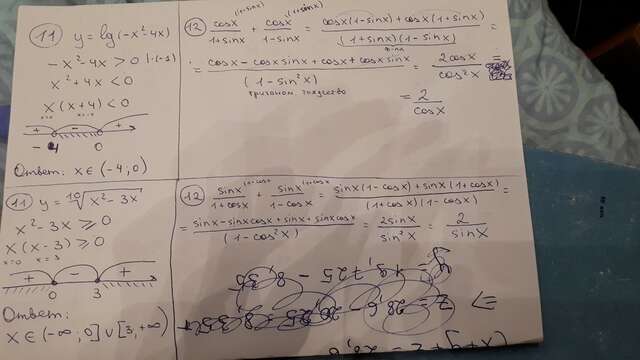 11 y = lg(-x²-4x)
-x²-4x > 0 |·(-1)
x²+4x < 0
x(x+4) < 0
x=0 x=-4
+ - +
-4 0
Ответ: x ∈ (-4; 0)
12 cosx^(1-sinx) / 1+sinx + cosx^(1+sinx) / 1-sinx = cosx(1-sinx)+cosx(1+sinx) / (1+sinx)(1-sinx) =
= cosx-cosx sinx+cosx+cosx sinx / (1-sin²x) = 2cosx / cos²x =
= 2 / cosx
11 y = ¹⁰√x²-3x
x²-3x ⩾ 0
x(x-3) ⩾ 0
x=0 x=3
+ - +
0 3
Ответ:
x ∈ (-∞; 0] ∪ [3, +∞)
12 sinx^(1-cosx) / 1+cosx + sinx^(1+cosx) / 1-cosx = sinx(1-cosx)+sinx(1+cosx) / (1+cosx)(1-cosx) =
= sinx-sinxcosx+sinx+sinxcosx / (1-cos²x) = 2sinx / sin²x = 2 / sinx